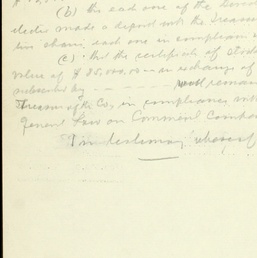 (b) the each one of the
elected made a deposit with the Treasurer
in shares, each one in compliance
(c) that the certificate of stock
value of $25,000.00 in exchange of
subscribed by - - - - - will remain
Treasury of the Co, in compliance with
General Law on Comment Comp
In testimony whereof